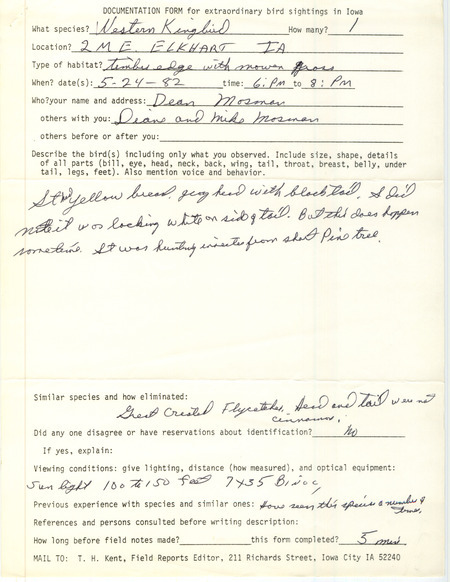 DOCUMENTATION FORM for extraordinary bird sightings in Iowa
What species? Western Kingbird How many? 1
Location? 2 M E. ELKHART IA
Type of habitat? timber edge with mowen grass
When? date(s): 5-24-82 time: 6: PM to 8: PM
Who? your name and address: Dean Mosman
others with you: Diane and Mike Mosman
others before or after you:
Describe the bird(s) including only what you observed. Include size, shape, details
of all parts (bill, eye, head, neck, back, wing, tail, throat, breast, belly, under
tail, legs, feet). Also mention voice and behavior.
yellow breast, gray head with black tail. I did
note it was lacking white on side of tail. But this does happen
sometime. It was hunting insects from short Pine tree.
Similar species and how eliminated:
Great Crested Flycatcher, head and tail were not
cinnamon.
Did any one disagree or have reservations about identification? No
If yes, explain:
Viewing conditions: give lighting, distance (how measured), and optical equipment:
Sun light 100 to 150 feet 7X35 Binoc,
Previous experience with species and similar ones: Have seen this species a number of
times.
References and persons consulted before writing description:
How long before field notes made? this form completed? 5 min
MAIL TO: T. H. Kent, Field Reports Editor, 211 Richards Street, Iowa City IA 52240